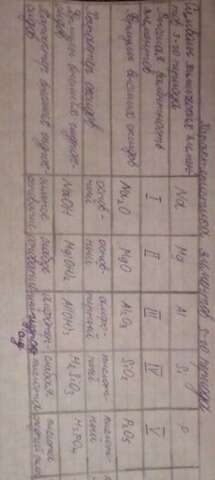 Характеристика элементов 3-го периода
Символы химических элемен-
тов 3-го периода
Na Mg Al Si P
Высшая валентность
элементов
I II III IV V
Формулы высших оксидов
Na₂O MgO Al₂O₃ SiO₂ P₂O₅
Характер оксидов
основ-
ный
основ-
ный
амфо-
терный
кислот-
ный
кислот-
ный
Формулы высших гидро-
ксидов
NaOH Mg(OH)₂ Al(OH)₃ H₂SiO₃ H₃PO₄
Характер высших гидро-
ксидов
сильное
основание
слабое
основание
амфотер
слабая
кислота
кислота